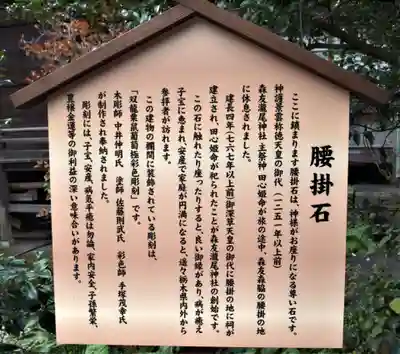 腰掛石
ここに鎮まります腰掛石は、神様がお座りになる尊い石です。
神護景雲称徳天皇の御代(一二五一年以上前)
森友瀧尾神社・主祭神 田心姫命が旅の途中、森友森脇の腰掛の地
に休息されました。
建長四年(七六七年以上前)御深草天皇の御代に腰掛の地に祠が
建立され、田心姫命が祀られたことが森友瀧尾神社の創始です。
この石に触れたり座ったりすると、良い御縁があり、病が癒え
子宝に恵まれ、安産で家庭が円満になると、遥々栃木県内外から
参拝者が訪れます。
この建物の欄間に装飾されている彫刻は、
「双龍栗鼠葡萄極彩色彫刻」です。
木彫師 中井伸明氏 塗師 佐藤則武氏 彩色師 手塚茂幸氏
が制作され奉納されました。
彫刻には、子宝、安産、病気平癒は勿論、家内安全、子孫繁栄、
豊穣金運等の御利益の深い意味合いがあります。